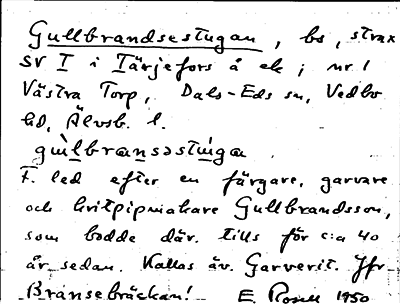 Gullbrandsestugan, bs, strax
SV I i Tärjefors å ek; nr 1
Västra Torp, Dals-Eds sn, Vedbo
hd, Älvsb. l.
gùlbransəstúga
F. led efter en färgare, garvare
och kritpipmakare Gullbrandsson,
som bodde där. tills för c:a 40
år sedan. Kallas äv. Garverit. Jfr
Bransebräckan! E. 1950